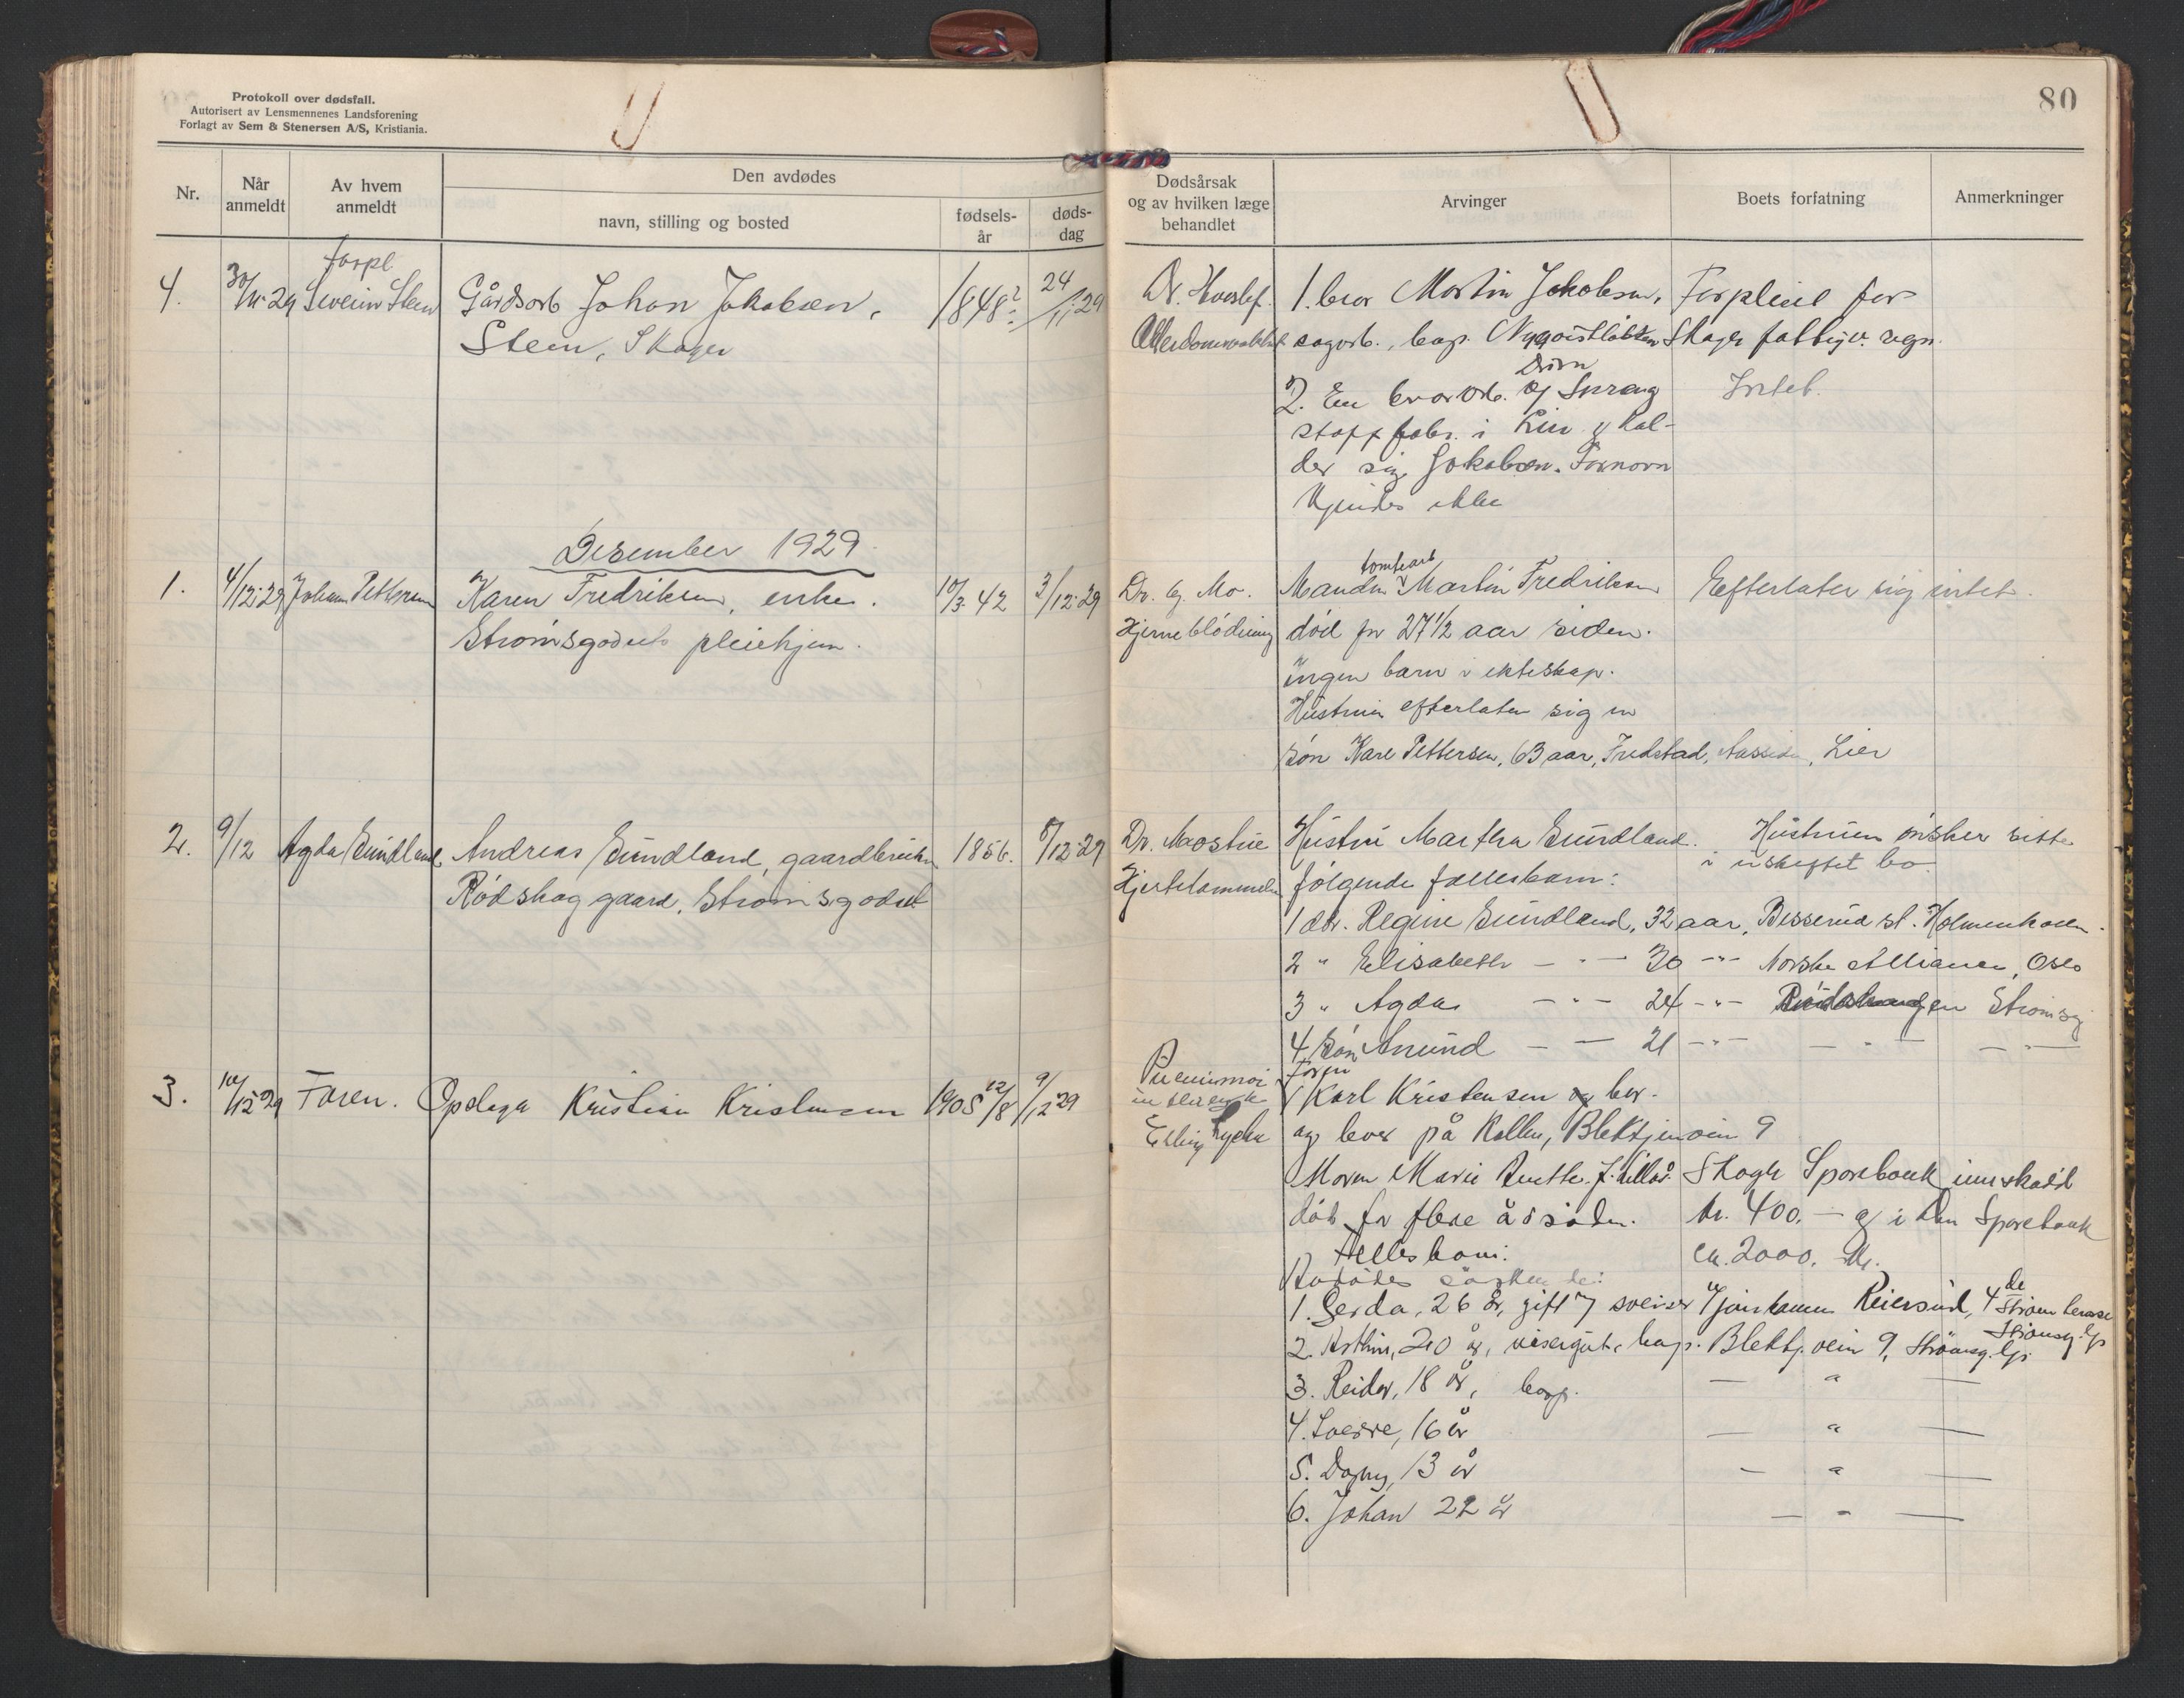 Protokoll over dødsfall.
Autorisert av Lensmennenes Landsforening
Forlagt av Sem & Stenersen A/S, Kristiania.
80
Nr.
Når anmeldt
Av hvem anmeldt
Den avdødes
navn, stilling og bosted
fødsels-år
døds-dag
Dødsårsak og av hvilken læge behandlet
Arvinger
Boets forfatning
Anmerkninger
forpl.
4. 30/11-29 Severin Steen Gårdsarb Johan Jakobsen, 1848? 24/11 29
Steen, Skoger
Dr. Hovslef.
1. bror Martin Jakobsen, Forpleiet for
sagarb., bop. Skoger fattigv. regn.
2. En bror arb. Intet.
stoff fabr. i Lier & kal-
der sig Jakobsen. Fornavn
kjendes ikke
Desember 1929
1. 4/12-29 Johan Pettersen Karen Fredriksen, enke. 10/3-42 3/12-29
Strømsgodset pleiehjem.
Dr. Mo.
Hjerneblødning
tomtearb
Manden Martin Fredriksen Efterlater sig intet.
død for 27 1/2 aar siden.
Ingen barn i ekteskap.
Hustruen efterlater sig en
søn Karl Pettersen, 63 aar, Fredstad, Lier
2. 9/12 Agda Sundland Andreas Sundland, gaardbruker 1856. 8/12-29
Rødskog gaard, Strømsgodset
Dr. Mostue
Hjertelammelse
Hustru Martha Sundland. Hustruen ønsker sitte
i uskiftet bo.
følgende fællesbarn:
1 dtr. Regine Sundland, 32 aar, Besserud st. Holmenkollen.
2 " Elisabeth - " - 30 - " - Norske Alliance, Oslo
3 " Agda - " - 24 - " - Strømsg
4 Søn Amund - - 21 - " - - " - - " -
3. 10/12 29 Faren. Opslager Kristian Kristensen 1905 12/8 9/12 29
Lycke
Faren
Karl Kristensen
og lever på Kollen, Blektjernvein 9
Moren Marie Skoger Sparebank innskudd
død for flere år siden. kr. 400.- og i Dn Sparebank
Fellesbarn: ca. 2000. kr.
Avdødes søsken de:
1. Gerda, 26 år, gift m/ sveiser Reiersrud, 4 de
2. 20 år, visergut, bop. Blektj. vein 9, Strømsg.
3. Reidar, 18 år, bop. - " -
4. Sverre, 16 år - " -
5. Dagny, 13 år - " -
6. Johan 22 år - " -